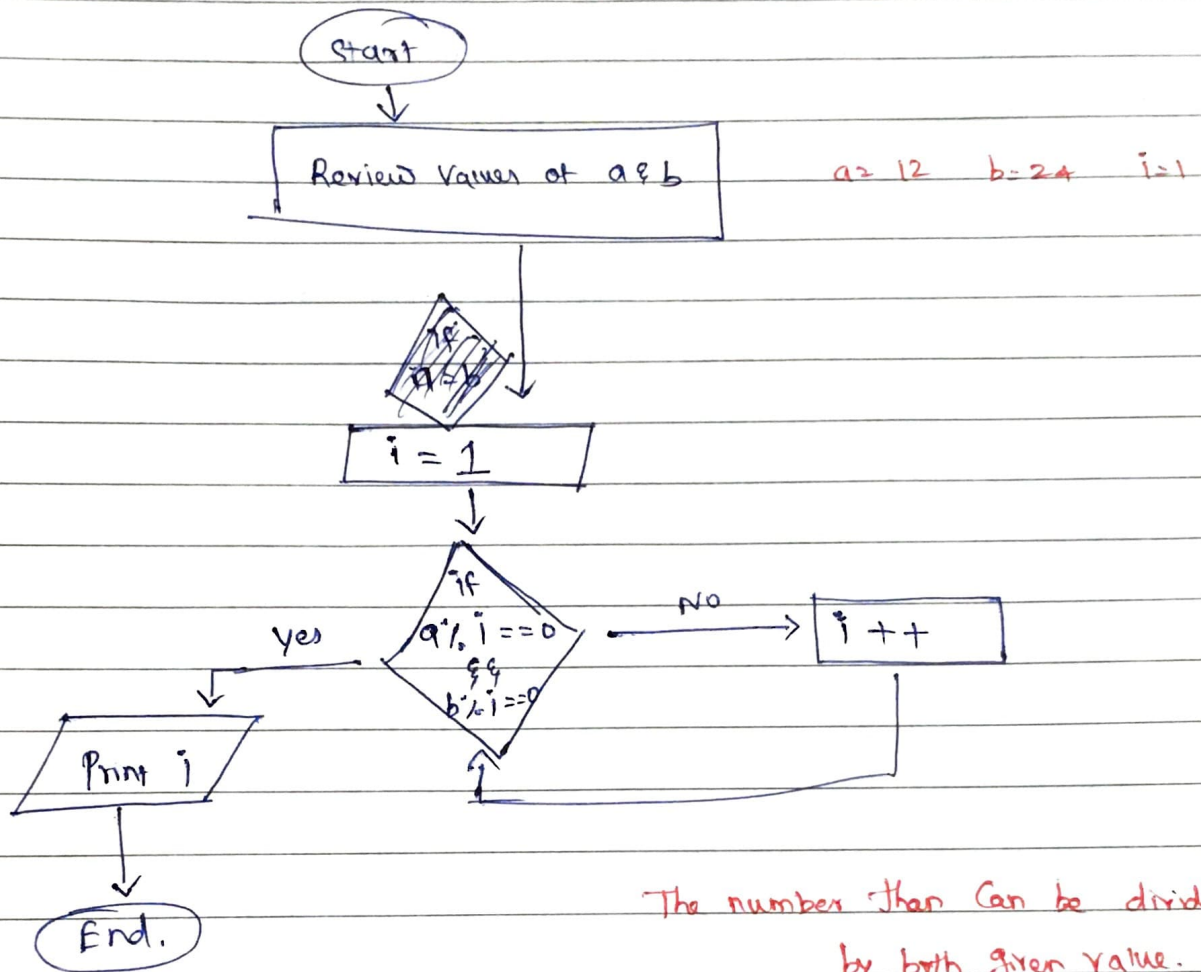 Start
Review Values of a & b
a = 12 b = 24 i = 1
if
a = b
i = 1
if
a % i == 0
&&
b % i == 0
Yes
NO
i ++
Print i
End.
The number than Can be divid
by both given value.